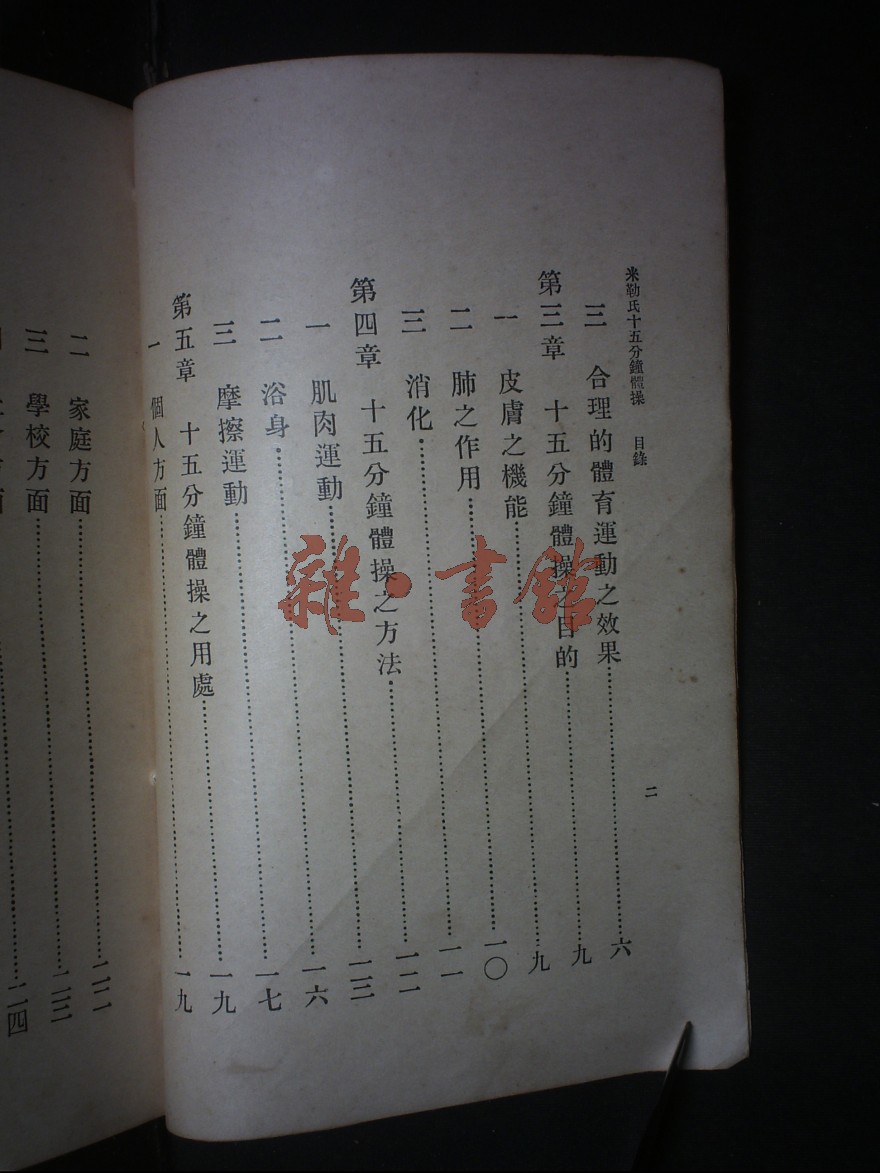 米勒氏十五分鐘體操 目錄 二
三 合理的體育運動之效果……六
第三章 十五分鐘體操之目的……九
一 皮膚之機能……九
二 肺之作用……一〇
三 消化……一一
第四章 十五分鐘體操之方法……一二
一 肌肉運動……一三
二 浴身……一六
三 摩擦運動……一七
第五章 十五分鐘體操之用處……一九
一 個人方面……一九
二 家庭方面……二二
三 學校方面……二三
方面……二四
雜·書館